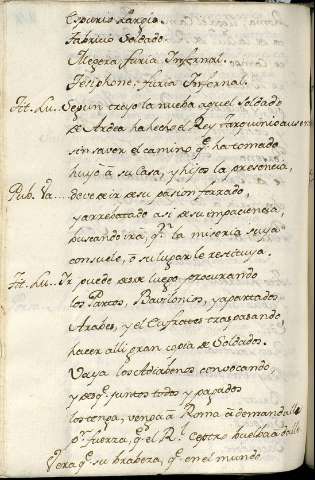 Espurio Largio.
Fabricio Soldado.
Megera, furia Infernal.
Tesiphone, furia Infernal.
Tit. Lu... Segun creyo la nueba aquel Soldado
de Ardea ha hecho el Rey Tarquinio ausente
sin saver el camino q.e ha tomado
huyó á su Casa, y hijos la presencia,
Pub. Va.... deve de ir de su pasion forzado,
y arrebatado asi de su impaciencia,
buscando irá, q.n la miseria suya
consuele, ó su lugar le restituya.
Tit. Lu... Ir puede desde luego procurando
los Partos, Bavilonios, y apartados
Arabes, y el Eufrates traspasando,
hacer alli gran copia de Soldados.
Vaya los Adiabenos convocando,
y desq.e juntos todos y pagados
los tenga, venga á Roma á demandalle
p.r fuerza, q.e el R.l Ceptro buelba á dalle
Vera q.e su brabeza, q.e en el mundo